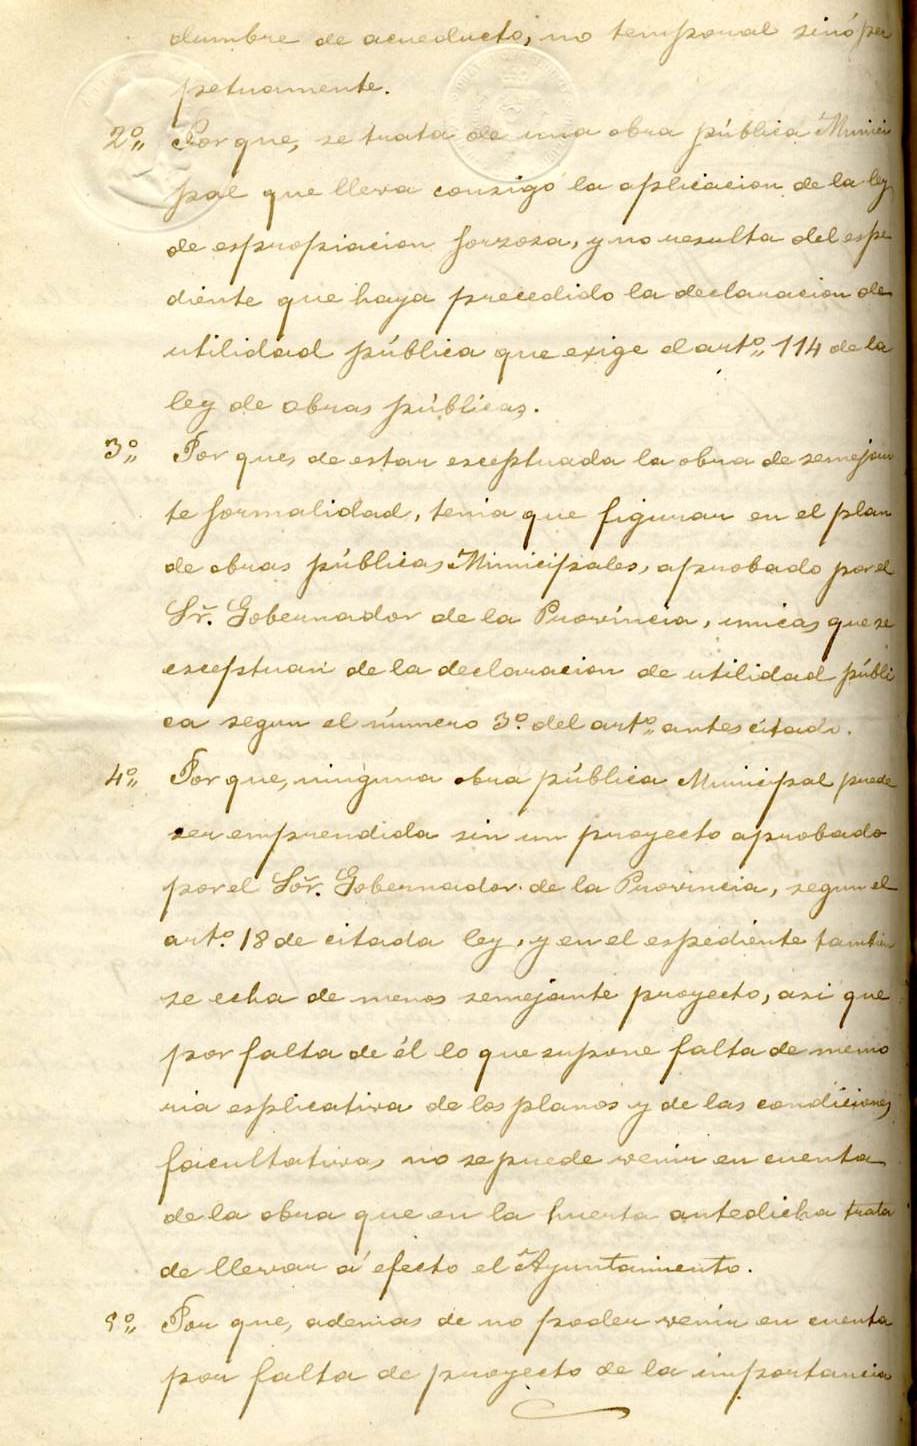 dumbre de acueducto, no temporal sinó per
petuamente.
2º,, Porque, se trata de una obra pública Munici
pal que lleva consigo la aplicacion de la ley
de espropiacion forzosa, y no resulta del espe
diente que haya precedido la declaracion de
utilidad pública que exige el artº,, 114 de la
ley de obras públicas.
3º,, Por que, de estar esceptuada la obra de semejan
te formalidad, tenia que figurar en el plan
de obras públicas Municipales, aprobado por el
Sr. Gobernador de la Provincia, unicas que se
esceptuan de la declaracion de utilidad públi
ca segun el número 3º del artº,, antes citado.
4º,, Por que, ninguna obra pública Municipal puede
ser emprendida sin un proyecto aprobado
por el Sor. Gobernador de la Provincia, segun el
artº 18 de citada ley, y en el espediente tambien
se echa de menos semejante proyecto, asi que
por falta de él lo que supone falta de memo
ria esplicativa de los planos y de las condiciones
facultativas no se puede venir en cuenta
de la obra que en la huerta antedicha trata
de llevar á efecto el Ayuntamiento.
5º,, Por que, ademas de no poder venir en cuenta
por falta de proyecto de la importancia